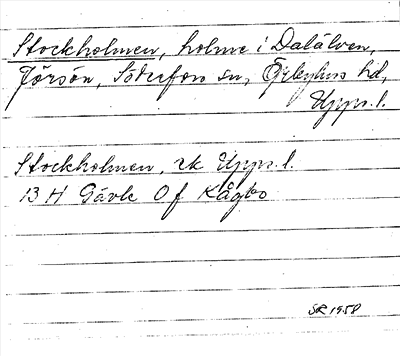 Stockholmen, holme i Dalälven,
Jörsön, Söderfors sn, Örbyhus hd,
Upps.l.
Stockholmen, rk Upps.l.
13 H Gävle 0 f Kågbo
SR 1958